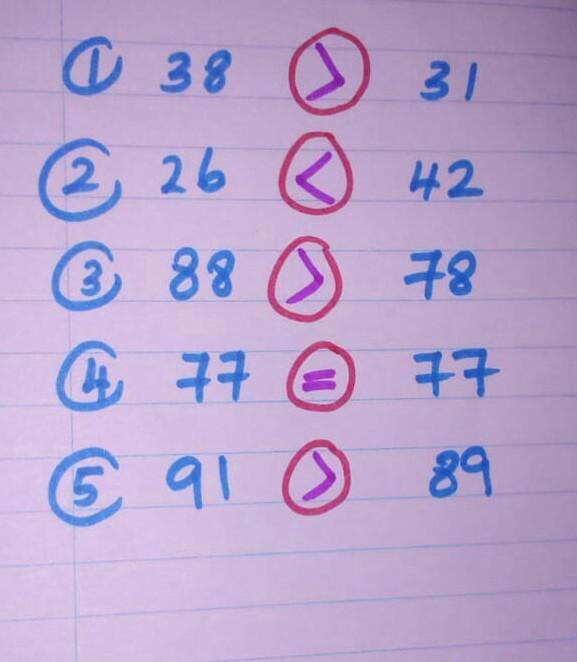 ① 38 > 31
② 26 < 42
③ 88 > 78
④ 77 = 77
⑤ 91 > 89